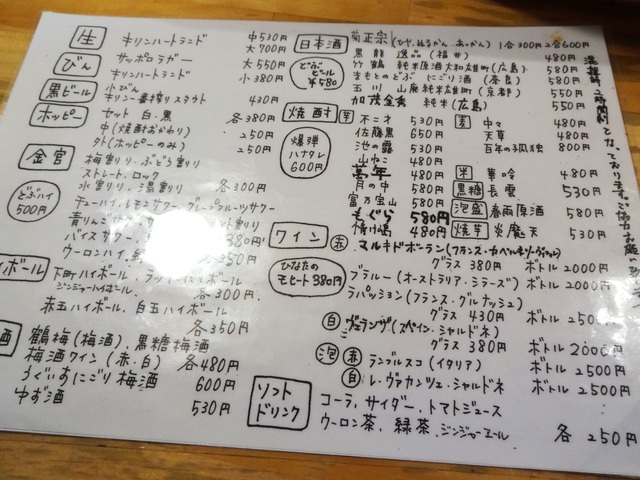 生 キリンハートランド 中530円
大700円
びん サッポロラガー 大550円
キリンハートランド 小380円
黒ビール 小びん
キリン一番搾りスタウト 430円
ホッピー セット 白・黒 各380円
中(焼酎おかわり) 250円
外(ホッピーのみ) 250円
金宮 梅割り、ぶどう割り
ストレート、ロック
水割り、湯割り 各300円
どぶハイ 500円
チューハイ、レモンサワー、グレープフルーツサワー
青りんごサワー
バイスサワー 380円
ウーロンハイ、 350円
ハイボール 下町ハイボール、
ジンジャーハイボール、 各300円
赤玉ハイボール、白玉ハイボール
各350円
酒 鶴梅(梅酒)、黒糖梅酒
梅酒ワイン(赤、白) 各480円
うぐいすにごり梅酒 600円
ゆず酒 530円
日本酒 菊正宗(ひや、ぬるかん、あつかん) 1合300円 2合600円
どぶビール ¥580
黒龍 逸品(福井) 480円
竹鶴 純米原酒大和雄町(広島) 580円
きもとのどぶ にごり酒(奈良) 580円
玉川 山廃純米雄町(京都) 550円
加茂金秀 純米(広島) 550円
焼酎
爆弾ハナタレ 600円
芋 不二才 530円
佐藤黒 650円
池の露 530円
山ねこ 480円
萬年 480円
月の中 580円
富乃宝山 580円
もぐら 580円
情け嶋 480円
麦 中々 480円
天草 480円
百年の孤独 800円
米 華吟 480円
黒糖 長雲 530円
泡盛 春雨原酒 580円
焼芋 炎魔天 530円
ワイン
ひなたのモヒート380円
赤 マルキドボーラン(フランス・カベルネソーヴィニヨン)
グラス 380円 ボトル 2000円
ブラルー(オーストラリア・シラーズ) ボトル 2000円
ラパッション(フランス・グルナッシュ)
グラス 430円 ボトル 2500円
白 (スペイン・シャルドネ)
グラス 380円 ボトル 2000円
泡 赤 ランブルスコ(イタリア) ボトル 2500円
白 レ・ヴァカンツェ・シャルドネ ボトル 2500円
ソフトドリンク
コーラ、サイダー、トマトジュース
ウーロン茶、緑茶、ジンジャーエール 各250円
2時間制となっております。ご協力お願い